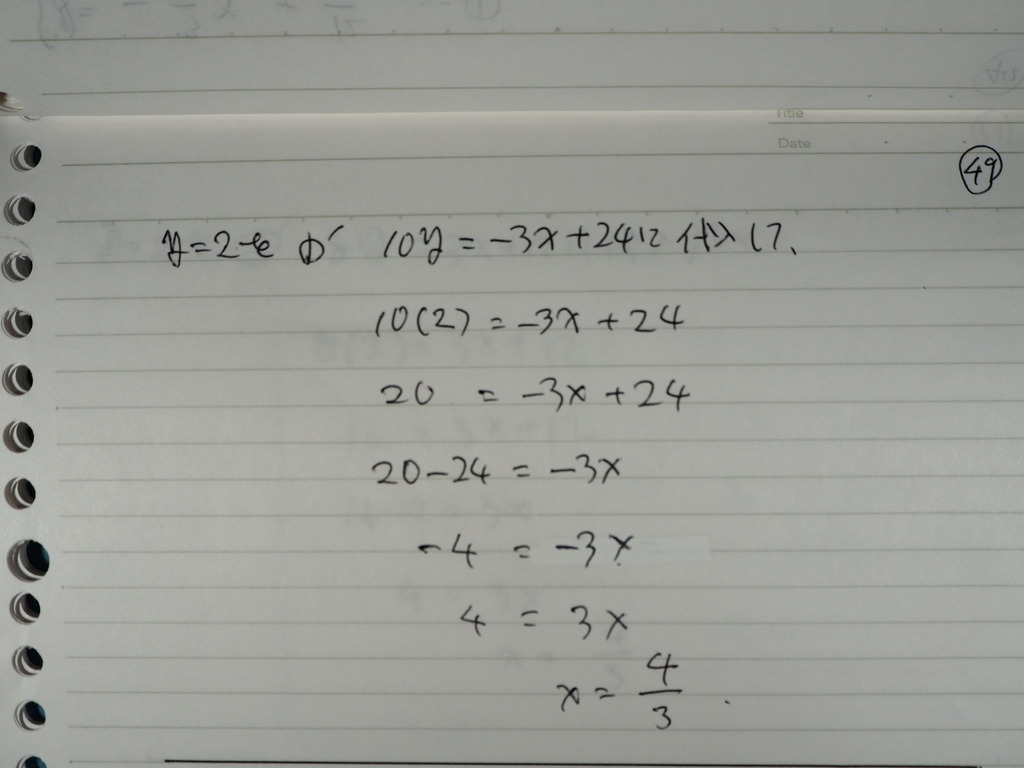 Title
Date
㊾
y=2を ①´ 10y = -3x+24に代入して、
10(2) = -3x + 24
20 = -3x + 24
20-24 = -3x
-4 = -3x
4 = 3x
x = 4/3 .